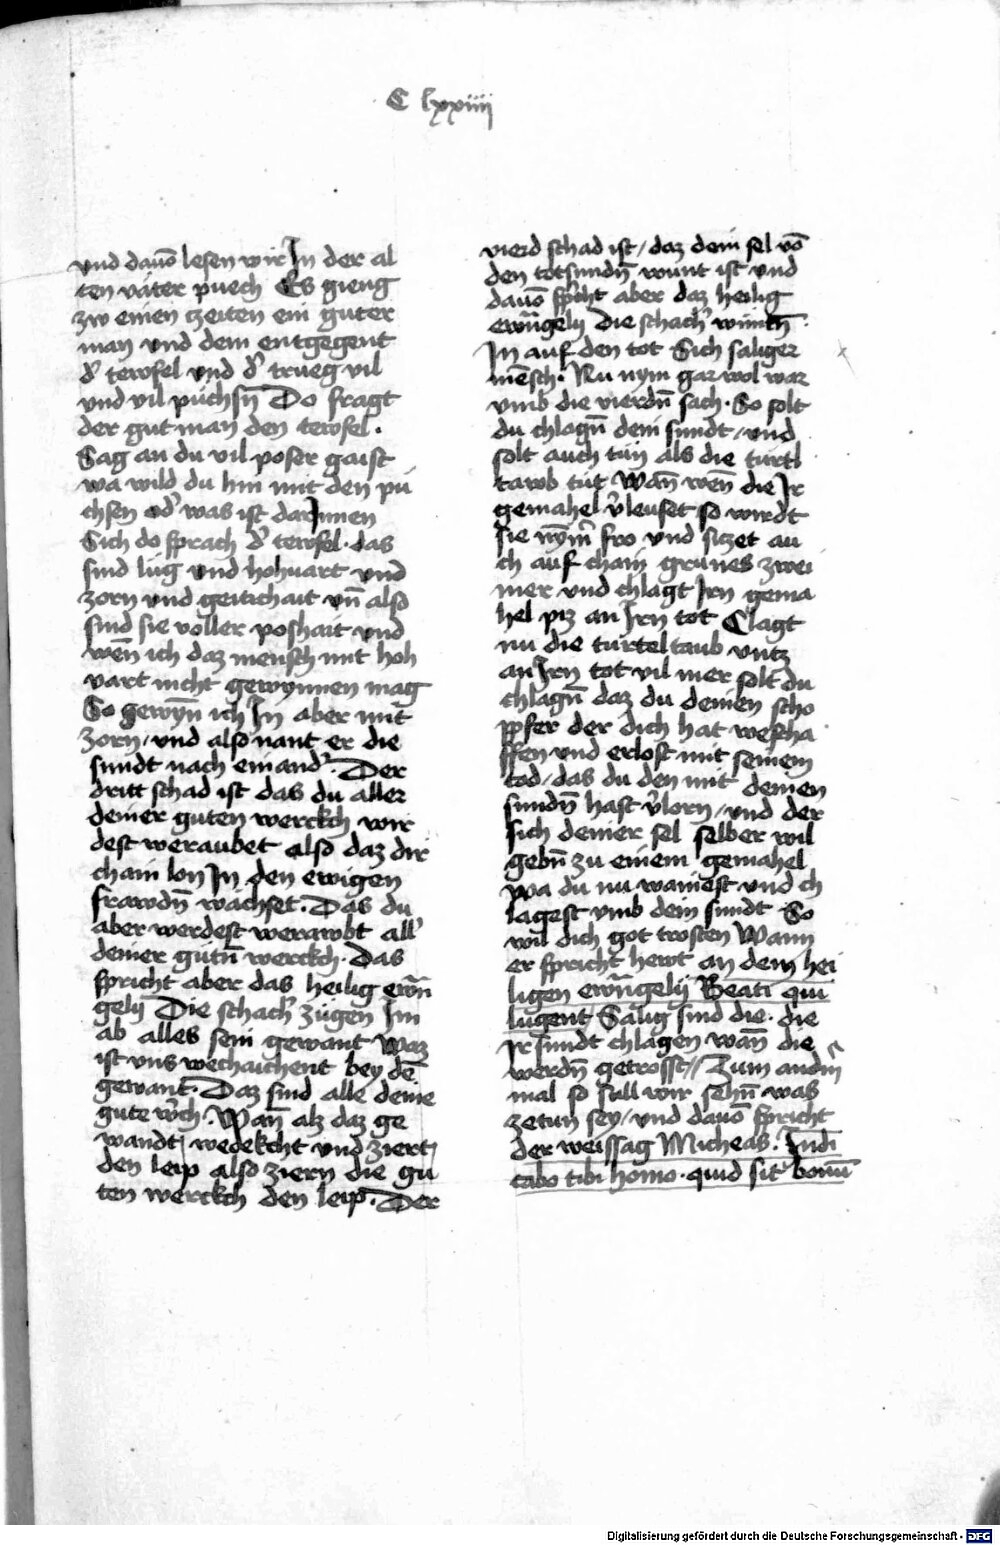 C lxxiiij
vnd dauō lesen wir In der al
ten väter puech Es gieng
zw einen czeiten ein guter
man vnd dem entgegent
d' tewfel vnd d' trueg vil
vnd vil püchsn̄ Do fragt
der gut man den tewfel .
Sag an du vil poser gaist
wa wild du hin mit den pü
chsen od' was ist darInnen
Sich do sprach d' tewfel . das
sind lüg vnd hohuart vnd
zorn vnd geitichait vn̄ also
sind sie voller poshait vnd
wen̄ ich daz mensch mit hoh
vart nicht gewynnen mag
So gewyn̄ ich In aber mit
zorn / vnd also nant er die
sundt nach einand' . Der
dritt schad ist das du aller
deiner guten werckch wir
dest weraubet also daz dir
chain lon In den ewigen
frawdn̄ wachset . Das du
aber werdest werawbt all'
deiner gutn̄ werckch . Das
spricht aber das heilig ewā
gelij Die schach' zugen Im
ab alles sein gewant Waz
ist vns wechaichent bey dē
gewant . Daz sind alle deine
gute w'ch . Wan̄ alz daz ge
wandt wedekcht vnd ziert
den leip also ziern die gu
ten werckch den leip . Der
vierd schad ist / daz dein sel vō
den totsundn̄ wunt ist vnd
dauō sp'cht aber daz heilig
ewāgelij die schach' wūntn̄
In auf den tot Sich saliger
mēsch . Nu nym gar wol war
vmb die vierdn̄ sach . So solt
du chlagn̄ dein sundt / vnd
solt auch tun als die turtl
tawb tut Wan̄ wen̄ die Ir
gemahel v'leuset so wirdt
sie nym̄' fro vnd siczet au
ch auf chain grunes zwei
mer vnd chlagt Irn gema
hel piz an Irn tot Clagt
nu die turtel taub vntz
an Irn tot vil mer solt du
chlagn̄ daz du deinen scho
ppfer der dich hat wescha
ffen vnd erlost mit seinem
tod / das du den mit deinen
sundn̄ hast v'lorn / vnd der
sich deiner sel selber wil
gebn̄ zu einem gemahel
wa du nu wainest vnd ch
lagest vmb dein sundt So
wil dich got trosten Wann
er spricht hewt an dem hei
ligen ewāgelij Beati qui
lugent / Sälig sind die . die
Ir sundt chlagen wan̄ die
werdn̄ getrosst // Zum andn̄
mal so sull wir sehn̄ was
zetun sey / vnd dauō spricht
der weissag Micheas . Indi
cabo tibi homo . quid sit bonū